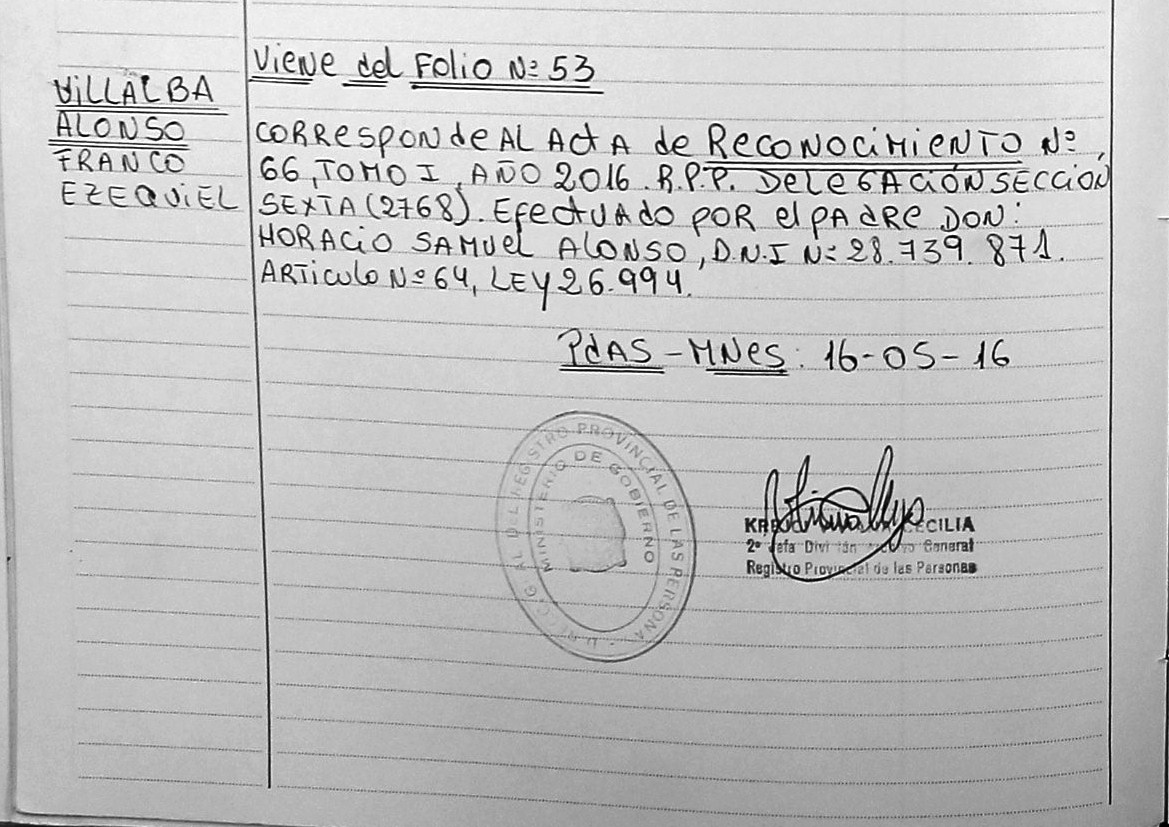 Viene del Folio Nº 53
VILLALBA
ALONSO
FRANCO
EZEQUIEL
CORRESPONDE AL ACTA de RECONOCIMIENTO Nº
66, TOMO I, AÑO 2016. R.P.P. DELEGACIÓN SECCIÓN
SEXTA (2768). Efectuado POR el PADRE DON:
HORACIO SAMUEL ALONSO, D.N.I Nº 28.739.871.
ARTICULO Nº 64, LEY 26.994.
PdAS - MNES: 16-05-16
REGISTRO PROVINCIAL DE LAS PERSONA
MINISTERIO DE GOBIERNO
CECILIA
2º Jefa División General
Registro Provincial de las Personas